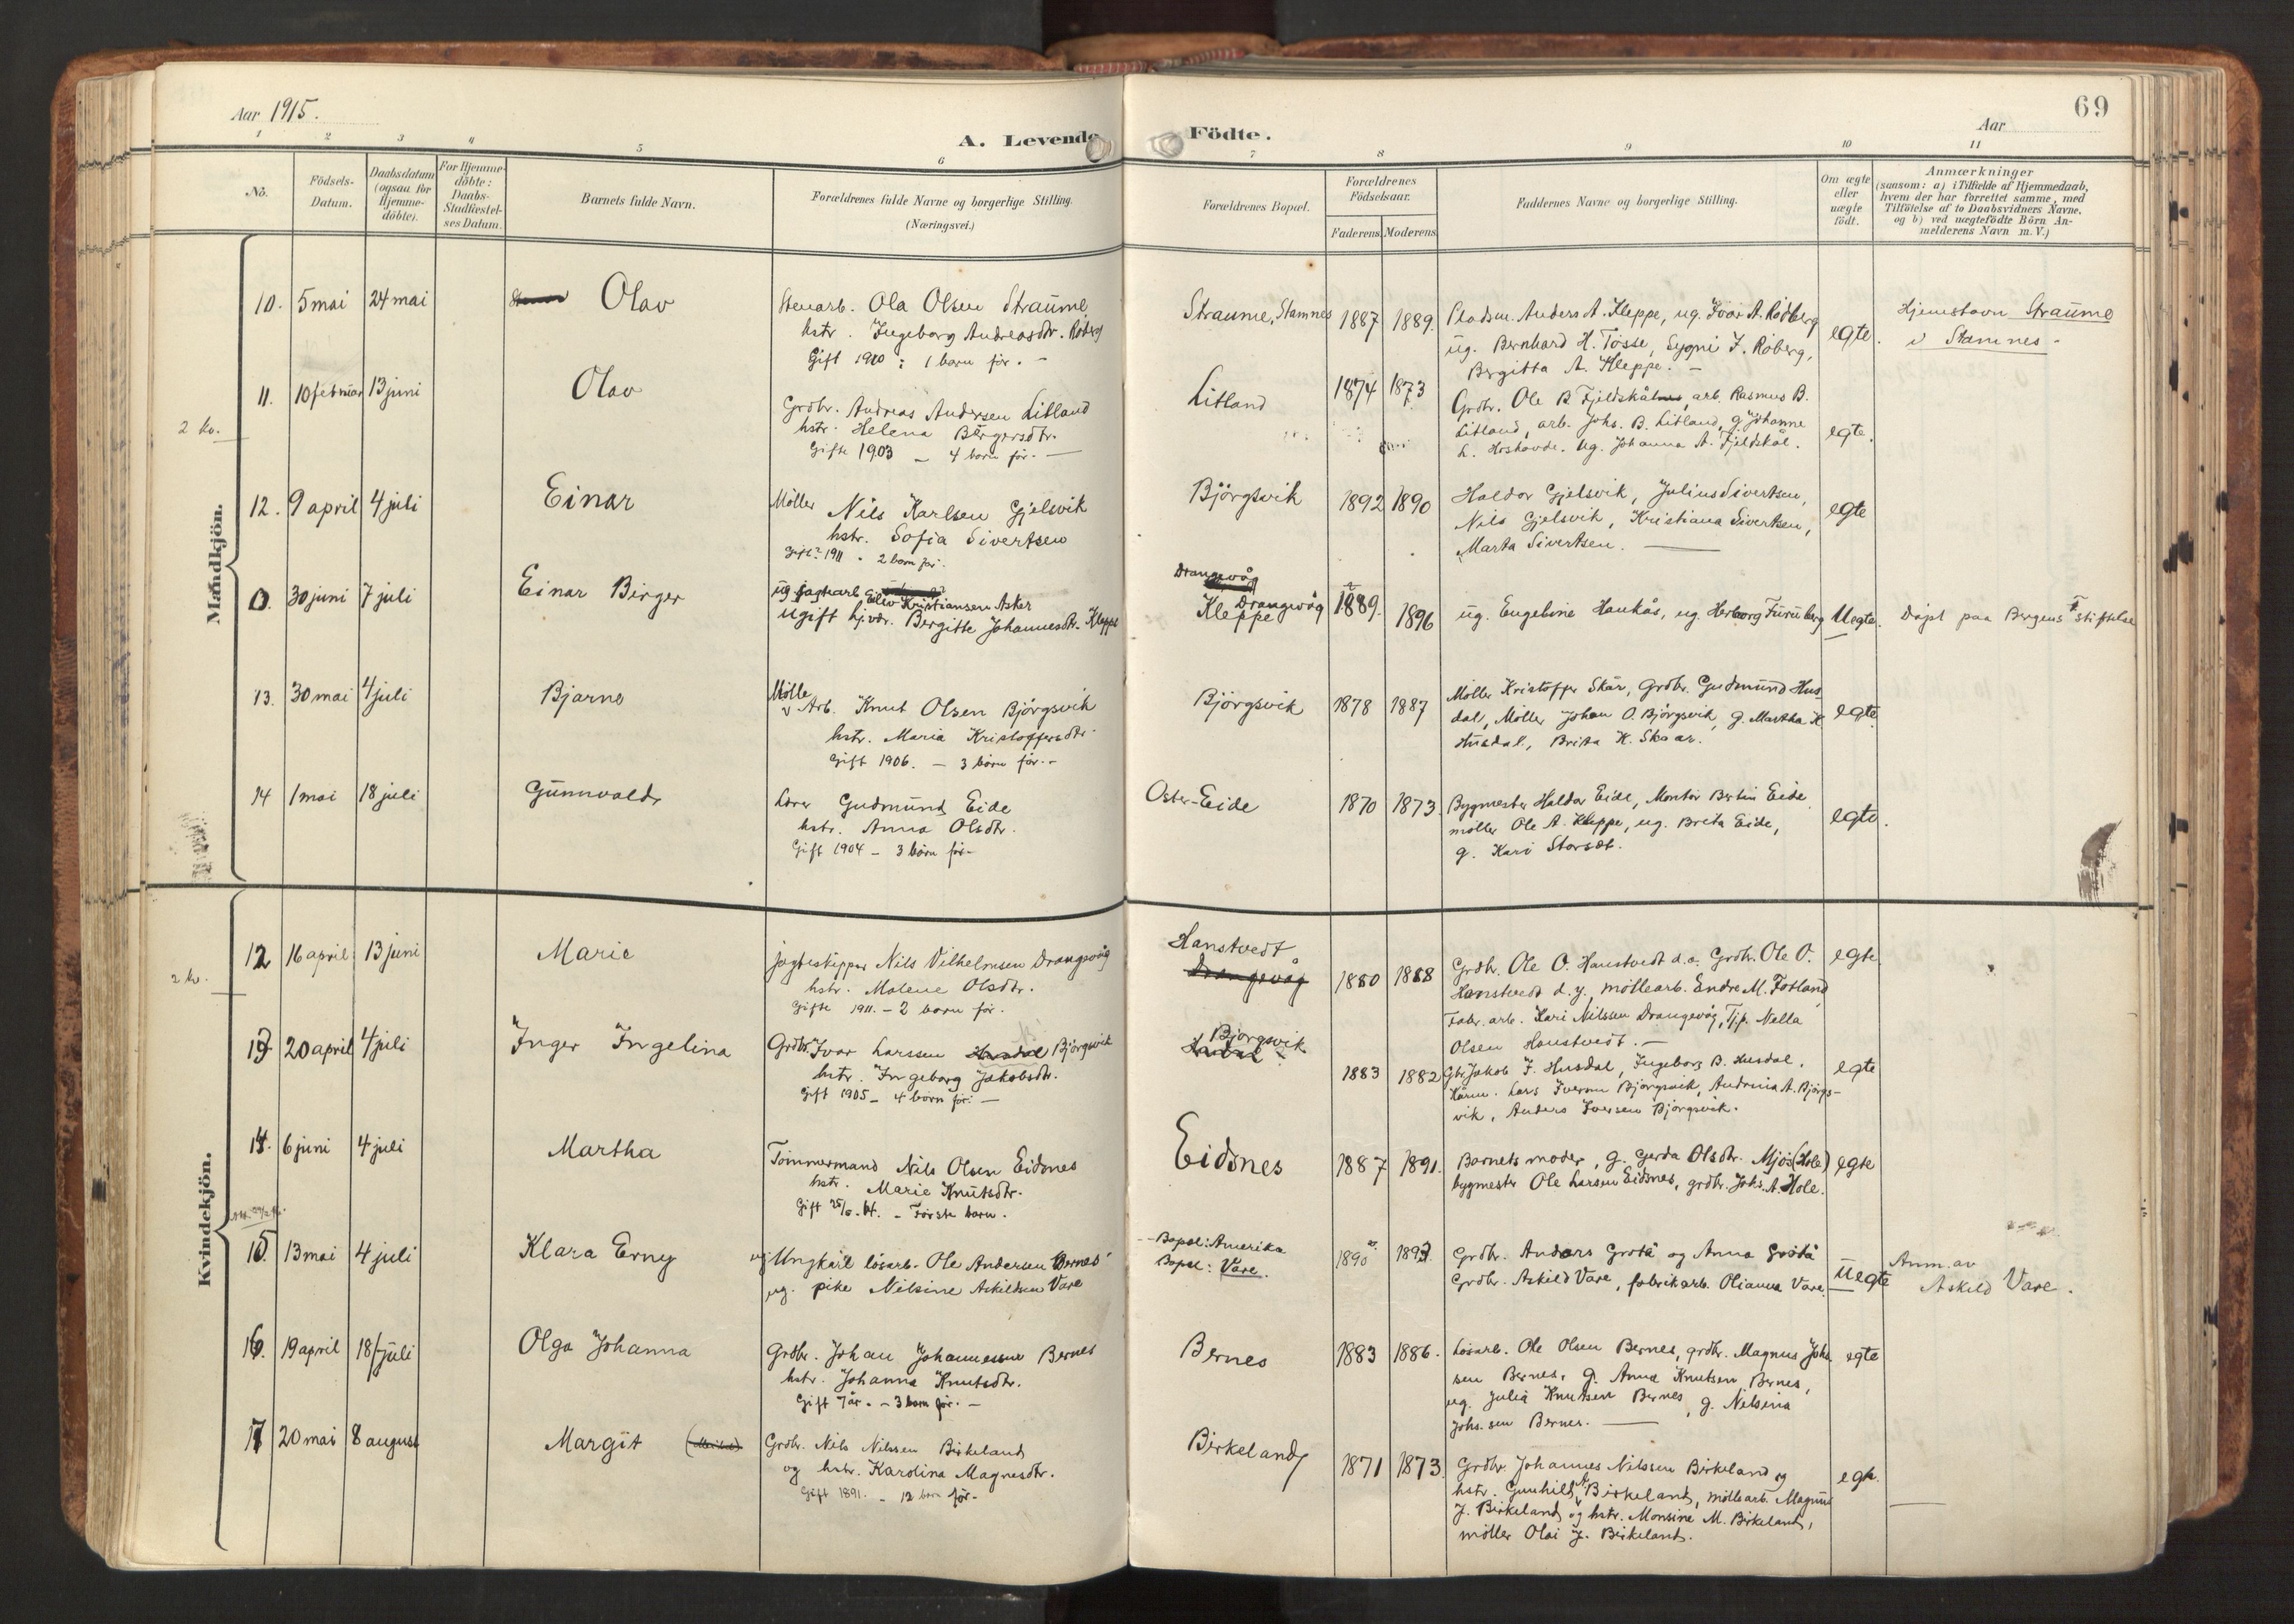 Aar 1915.
A. Levende Födte.
Aar
69
1 2 3 4 5 6 7 8 9 10 11
No.
Födsels-
Datum.
Daabsdatum
(ogsaa for
Hjemme-
döbte).
For Hjemme-
döbte:
Daabs-
Stadfæstel-
ses Datum.
Barnets fulde Navn.
Forældrenes fulde Navne og borgerlige Stilling.
(Næringsvei.)
Forældrenes Bopæl.
Forældrenes
Födselsaar.
Faderens.
Moderens.
Faddernes Navne og borgerlige Stilling.
Om ægte
eller
uægte
födt.
Anmærkninger
(saasom: a) i Tilfælde af Hjemmedaab,
hvem der har forrettet samme, med
Tilföielse af to Daabsvidners Navne,
og b) ved uægtefödte Börn An-
melderens Navn m. V.)
Mandkjön.
10. 5 mai 24 mai Olav
Stenarb. Ola Olsen Straume
hstr. Ingeborg Andreasdtr. Röberg
Gift 1910 : 1 barn för. –
Straume, Stamnes 1887 1889.
Pladsm. Anders A. Kleppe, ug. Ivar A. Rödberg
ug. Bernhard H. Tösse, Sygni J. Röberg,
Bergitta A. Kleppe. –
egte.
Hjemstavn Straume
i Stamnes –
2 kv.
11. 10 februar 13 juni Olav
Grdbr. Andreas Andersen Litland
hstr. Helena Börgersdtr.
Gifte 1903 – 4 born för. –
Litland 1874 1873
Grdbr. Ole B. Fjeldskål, arb. Rasmus B.
Litland, arb. Johs. B. Litland, g. Johanne
L. Hoshovde. ug. Johanna A. Fjeldskål.
egte.
12. 9 april 4 juli Einar
Möller Nils Karlsen Gjelsvik
hstr. Sofia Sivertsen
Gift 1911 – 2 born för.
Björgsvik 1892 1890
Haldor Gjelsvik, Julius Sivertsen,
Nils Gjelsvik, Kristiana Sivertsen,
Marta Sivertsen. –
egte
0. 30 juni 7 juli Einar Birger
ug. fagharb. Eilev Kristiansen Asker
Ugift hj.vær. Bergitte Johannesdtr. Kleppe
Drangevåg
Kleppe Drangevåg 1889. 1896
ug. Engeline Haukås, ug. Herborg Furuberg
Uegte.
Döpt paa Bergens Fstiftelse
13. 30 mai 4 juli Bjarne
Mölle
Arb. Knut Olsen Björgsvik
hstr. Maria Kristoffersdtr.
Gift 1906. – 3 börn för. –
Björgsvik 1878 1887
Möller Kristoffer Skår, Grdbr. Gudmund Hus
dal, Möller Johan O. Björgsvik, g. Martha K
Husdal, Brita K. Skaar.
egte.
14 1 mai 18 juli Gunnvald
Lærer Gudmund Eide
hstr. Anna Olsdtr.
Gift 1904 – 3 börn för –
Oster-Eide 1870 1873
Bygmester Haldor Eide, Montör Bertin Eide
möller Ole A. Kleppe, ug. Breta Eide,
g. Kari Storset.
egte.
Kvindekjön.
2 kv.
12 16 april 13 juni Marie
jagteskipper Nils Vilhelmsen Drangevåg
hstr. Malene Olsdtr.
Gifte 1911. – 2 born för.
Hanstvedt
Drangevåg 1880 1888
Grdbr. Ole O. Hanstvedt d.e. Grdbr. Ole O.
Hanstvedt d.y., möllearb. Endre M. Fotland
Fabr. arb. Kari Nilssen Drangevåg, Tjp. Nella
Olsen Hanstvedt. –
egte.
13 20 april 4 juli Inger Ingelina
Grdbr. Ivar Larssen Husdal Björgsvik
hstr. Ingeborg Jakobsdtr.
Gift 1905 – 4 born för. –
Björgsvik
Husdal 1883 1882
Gbr. Jakob J. Husdal, Ingeborg B. Husdal,
Kårm. Lars Iversen Björgsvik, Andrina A. Björgs-
vik, Anders Iversen Björgsvik.
egte
14. 6 juni 4 juli Martha
Tömmermand Nils Olsen Eidsnes
hstr. Marie Knutsdtr.
Förste barn.
Eidsnes 1887 1891.
Barnets moder, g. Gerda Olsdtr. Mjös (Hole)
bygmester Ole Larsen Eidsnes, grdbr. Johs. A. Hole.
egte
15 13 mai 4 juli Klara Erny
Ungkarl lösarb. Ole Andersen Bernes
ug. pike Nilsine Askildsen Vare
Bopæl: Amerika
Bopæl: Vare. 1890 1893.
Grdbr. Anders Grötå og Anna Grötå
Grdbr. Askild Vare, fabrikarb. Olianna Vare.
Uegte
Anm. av
Askild Vare.
16. 19 april 18 juli Olga Johanna
Grdbr. Johan Johannessen Bernes
hstr. Johanna Knutsdtr.
Gift 7 år. – 3 born för. –
Bernes 1883 1886.
Lösarb. Ole Olsen Bernes, grdbr. Magnus Johs.
sen Bernes, g. Anna Knutsen Bernes,
ug. Julia Knutsen Bernes, g. Nilsina
Johs. sen Bernes. –
egte
17 20 mai 8 august Margit
Grdbr. Nils Nilssen Birkeland
og hstr. Karolina Magnesdtr.
Gift 1891. – 12 born för –
Birkeland 1871 1873.
Grdbr. Johannes Nilssen Birkeland og
hstr. Gunhild Birkeland, möllearb. Magnus
J. Birkeland og hstr. Monsine M. Birkeland,
möller Olai J. Birkeland.
egte.